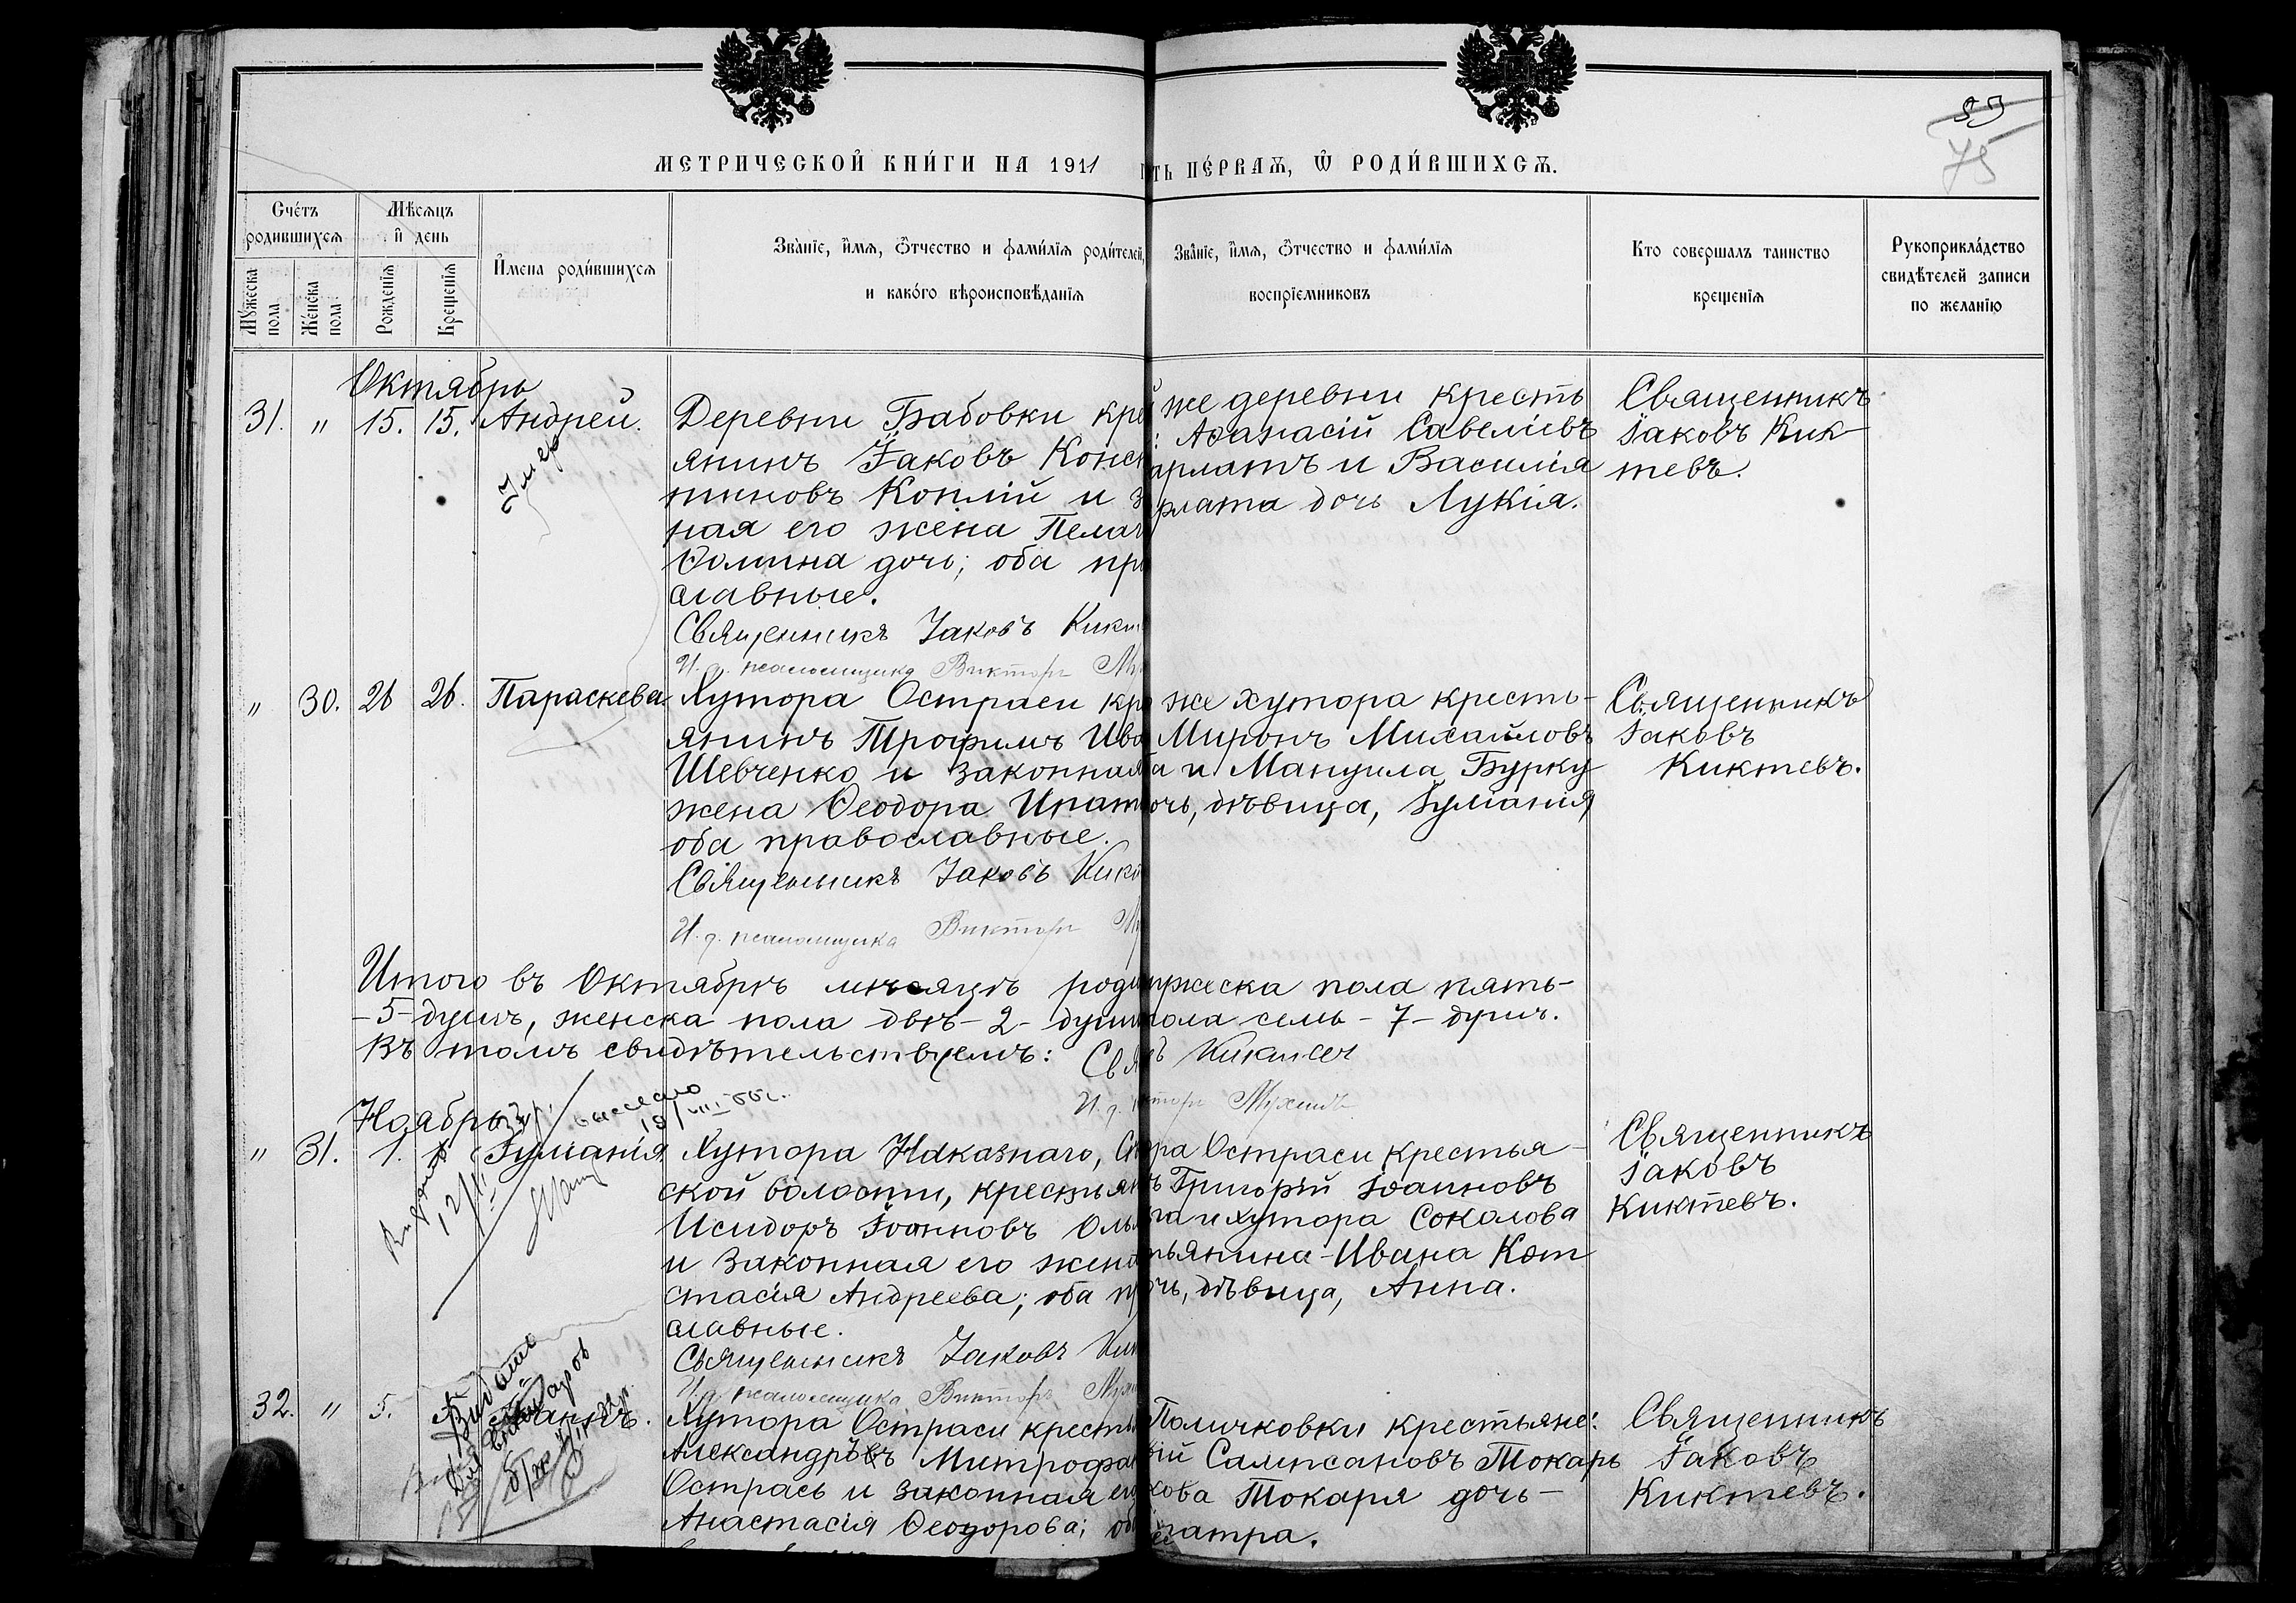 МЕТРИЧЕСКОЙ КНИ́ГИ НА 1911
ть ПЕ́РВАѦ, Ѿ РОДИ́ВШИХСѦ.
75
Сче́тъ родившихсѧ
Мѣсѧцъ и день
Мꙋ́жеска пола
Же́нска пола
Рожденїѧ
Крещенїѧ
И҆мена роди́вшихсѧ
Зва́нїе, и҆мѧ, ѻ҆тчество и фами́лїѧ роди́телей,
и како́го вѣроисповѣ́данїѧ
Зва́нїе, и҆мѧ, ѻ҆тчество и фами́лїѧ
воспрїемниковъ
Кто совершалъ таинство
крещенїѧ
Рукоприкла́дство
свидѣ́телей записи
по желанїю
Октябрь
31. " 15. 15. Андрей.
Умеръ
Деревни Бабовки кре
янинъ Іаковъ Конст
тиновъ Коплій и з
ная его жена Пелаг
Ѳомина дочь; оба пр
славные.
Священникъ Іаковъ Кикт
И. д. псаломщика Викторъ Му
же деревни кресть
: Аѳанасій Савеліевъ
арлатъ и Василія
рлата дочь Лукія.
Священникъ
Іаковъ Кик-
тевъ.
" 30. 26 26. Параскева
Хутора Остраси кре
янинъ Трофимъ Ива
Шевченко и законная
жена Ѳеодора Ипат
оба православные.
Священникъ Іаковъ Кик
И. д. псаломщика Викторъ Му
же хутора кресть-
Миронъ Михайловъ
а и Мануила Бурку
очь, дѣвица, Іуліанія
Священникъ
Іаковъ
Киктевъ.
Итого въ Октябрѣ мѣсяцѣ роди
ужеска пола пять-
-5- душъ, женска пола двѣ-2- душ
пола семь - 7 - душъ.
Въ томъ свидѣтельствуемъ: Свя
ъ Киктевъ
И. д.
торъ Мухинъ
Ноябрь
" 31. 1. Іуліанія.
выслано
Хутора Наказнаго, Ст
ской волости, крестьян
Исидоръ Іоанновъ Оль
и законная его жена
стасія Андреева; оба пр
славные.
Священникъ Іаковъ Кик
И. д. псаломщика Викторъ Мух
ра Остраси крестья-
ъ Григорій Іоанновъ
га и хутора Соколова
тьянина Ивана Кот
очь, дѣвица, Анна.
Священникъ
Іаковъ
Киктевъ.
32. " 5.
Хутора Остраси кресть
Александръ Митрофа
Острась и законная ег
Анастасія Ѳеодорова; об
Поличковки крестьяне:
ій Сампсановъ Токарь
кова Токаря дочь-
атра.
Священникъ
Іаковъ
Киктевъ.